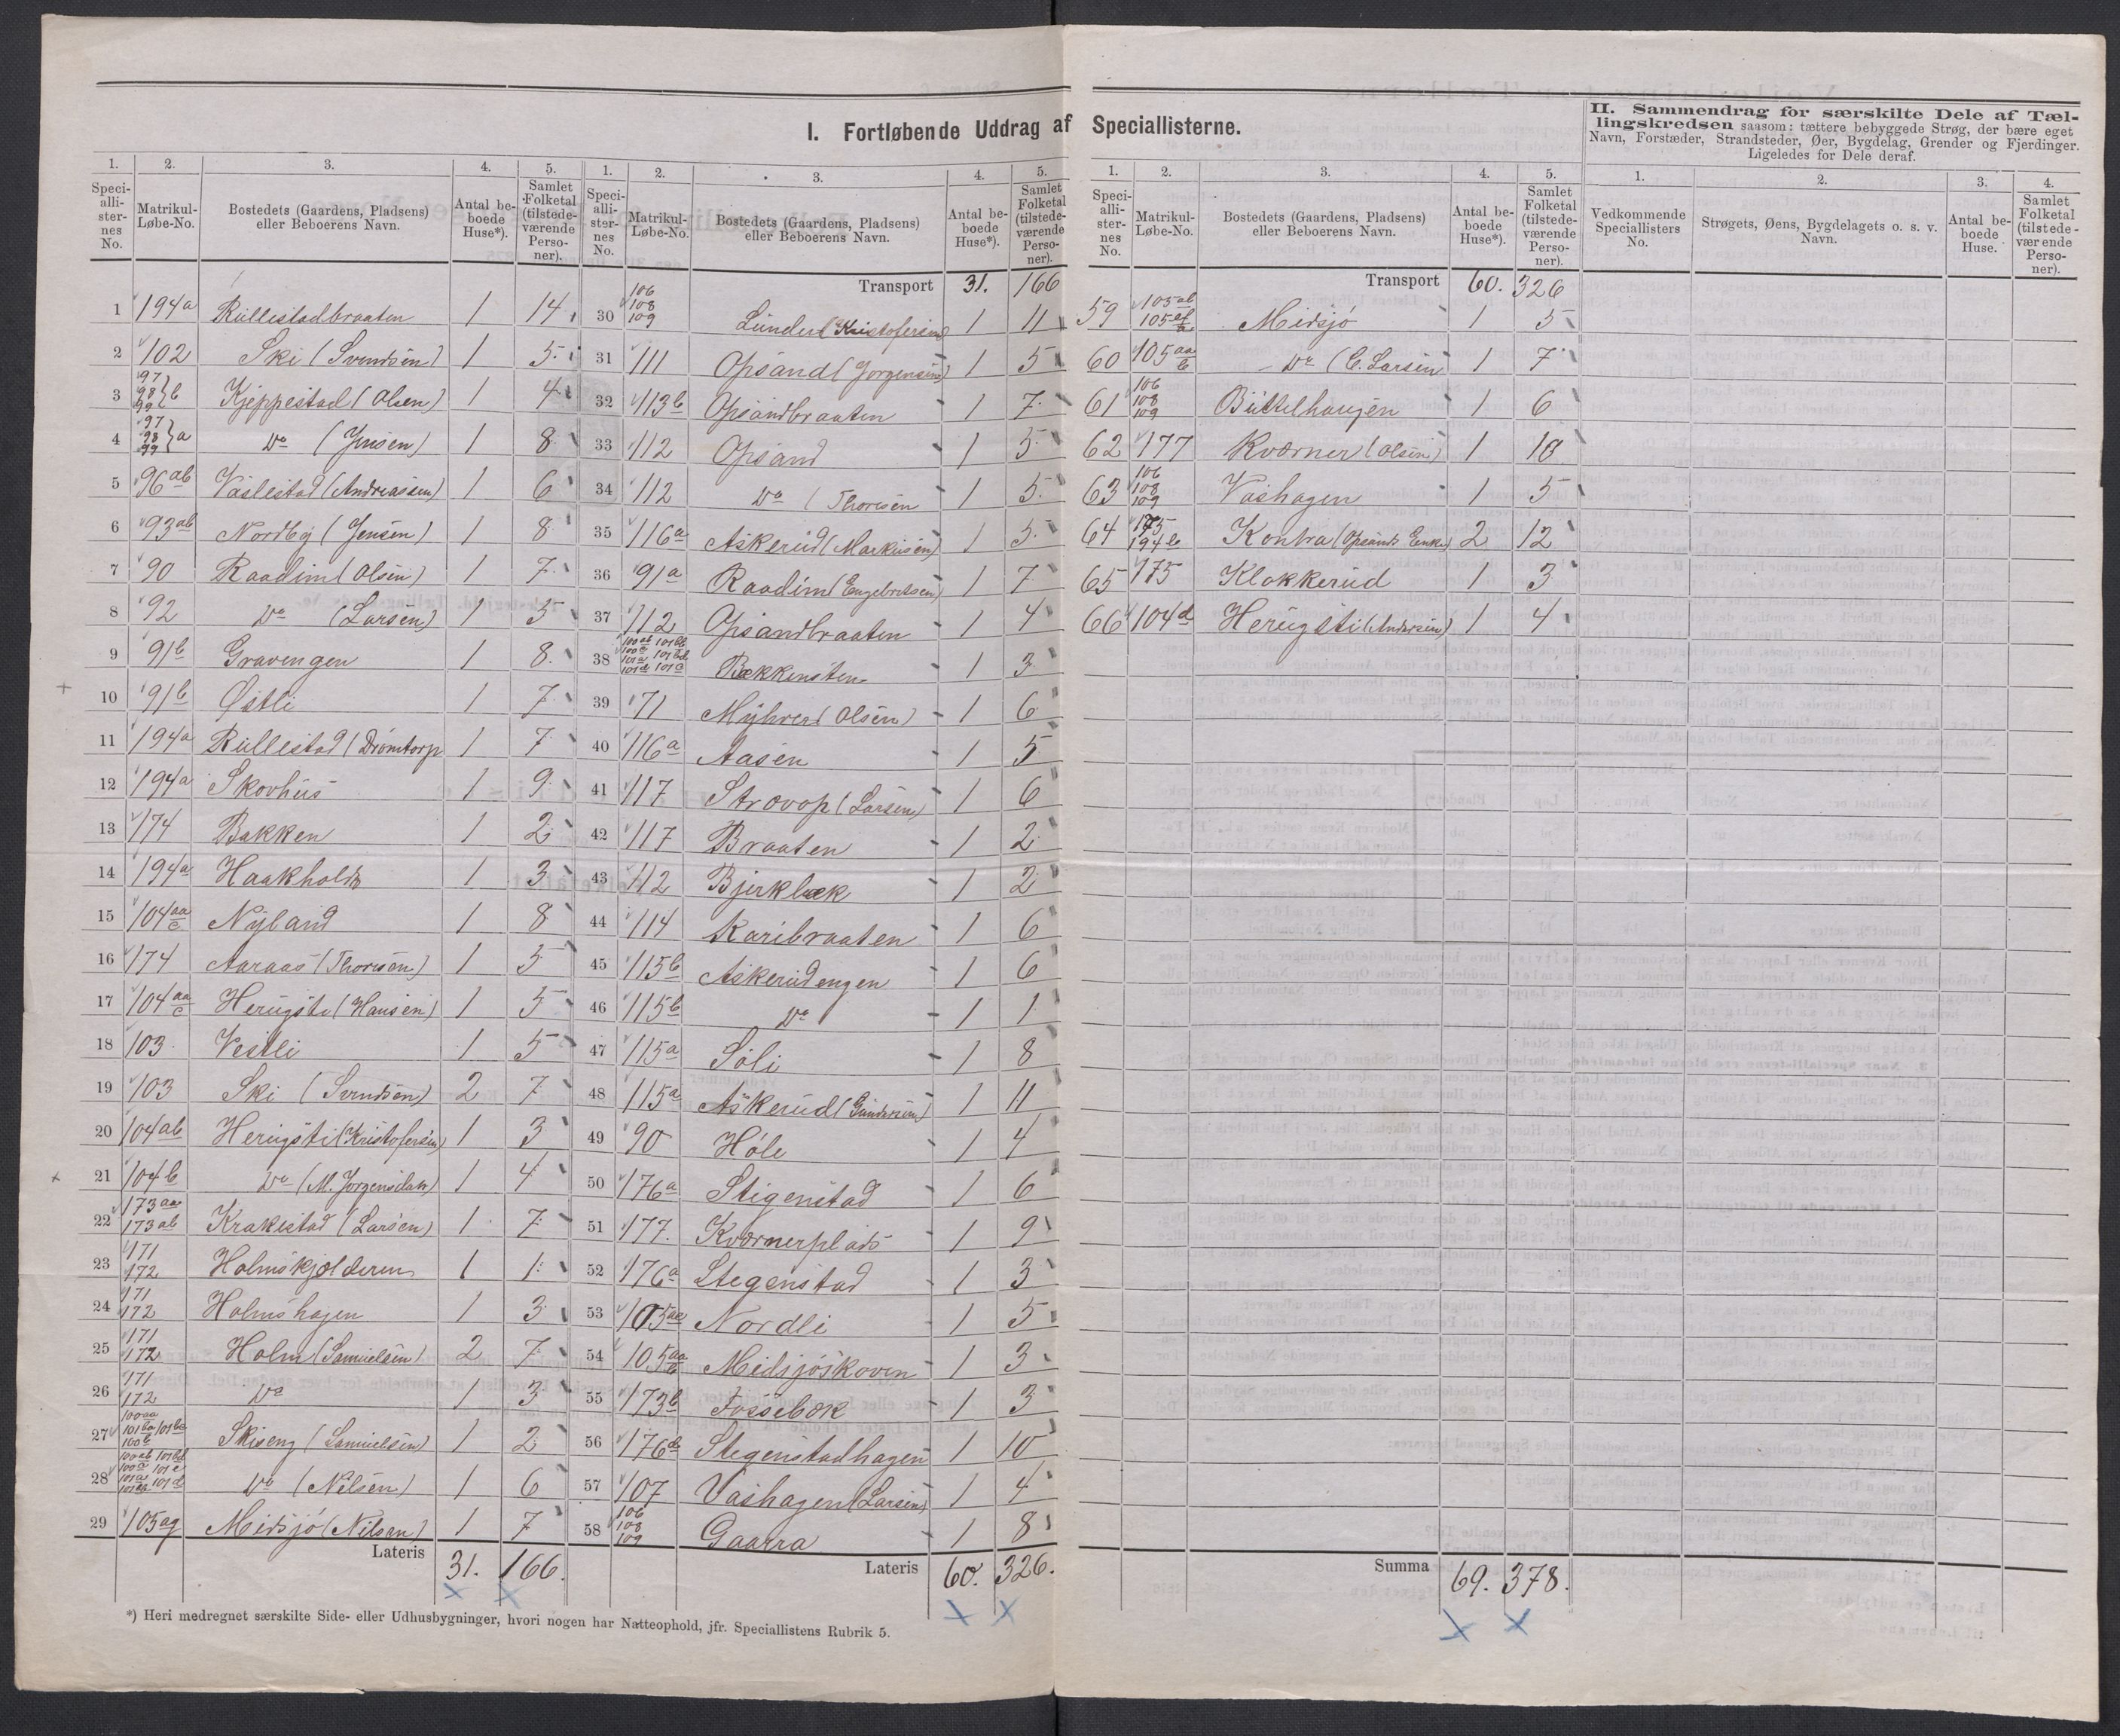 I. Fortløbende Uddrag af Speciallisterne.
II. Sammendrag for særskilte Dele af Tællingskredsen saasom: tættere bebyggede Strøg, der bære eget
Navn, Forstæder, Strandsteder, Øer, Bygdelag, Grender og Fjerdinger.
Ligeledes for Dele deraf.
1. 2. 3. 4. 5.
Speciallisternes No. Matrikul-Løbe-No. Bostedets (Gaardens, Pladsens) eller Beboerens Navn. Antal beboede Huse*). Samlet Folketal (tilstedeværende Personer).
1 194a Rullestadbraaten 1 14
2 102 Ski (Svendsen) 1 5
3 97 98 99 b Kjeppestad (Olsen) 1 4
4 97 98 99 a Do (Jensen) 1 8
5 96ab Vaslestad (Andreassen) 1 6
6 93ab Nordby (Jensen) 1 8
7 90 Raadim (Olsen) 1 7
8 92 Do (Larsen) 1 5
9 91b Gravengen 1 8
10 91b Østli 1 7
11 194a Rullestad (Drømtorp 1 7
12 194a Skovhus 1 9
13 174 Bakken 1 2
14 194a Haakholdt 1 3
15 104aa c Nyland 1 8
16 174 Aaraas (Thoresen) 1 5
17 104aa c Herugsti (Hansen) 1 5
18 103 Vestli 1 5
19 103 Ski (Svendsen) 2 7
20 104ab Herugsti (Kristofersen) 1 3
21 104b Do (M. Jorgensdatt) 1 4
22 173aa 173ab Krakestad (Larsen) 1 7
23 171 172 Holmskjolderen 1 1
24 171 172 Holmshagen 1 3
25 171 172 Holm (Samuelsen) 2 7
26 171 172 Do 1 3
27 Skiseng (Samuelsen) 1 2
28 Do (Nilsen) 1 6
29 105ag Midsjó (Nilsen) 1 7
Lateris 31. 166.
*) Heri medregnet særskilte Side- eller Udhusbygninger, hvori nogen har Natteophold, jfr. Speciallistens Rubrik 5.
1. 2. 3. 4. 5.
Speciallisternes No. Matrikul-Løbe-No. Bostedets (Gaardens, Pladsens) eller Beboerens Navn. Antal beboede Huse*). Samlet Folketal (tilstedeværende Personer).
Transport 31. 166
30 106 108 109 Lunder (Kristofersen) 1 11
31 111 Opsand (Jorgensen) 1 5
32 113b Opsandbraaten 1 7
33 112 Opsand 1 5
34 112 Do (Thoresen 1 5
35 116a Askerud (Markusen) 1 5
36 91a Raadim (Engebretsen) 1 7
37 112 Opsandbraaten 1 4
38 Bækkensten 1 3
39 71 Myhrer (Olsen) 1 6
40 116a Aasen 1 5
41 117 Strovop (Larsen) 1 6
42 117 Braaten 1 2
43 112 Bjerkbæk 1 2
44 114 Karibraaten 1 6
45 115b Askerudengen 1 6
46 115b Do 1 1
47 115a Soli 1 8
48 115a Askerud (Gundersen) 1 11
49 90 Hóle 1 4
50 176a Stigenstad 1 6
51 177. Kværnerplads 1 9
52 176a Stegenstad 1 3
53 Nordli 1 5
54 105aa b Midsjóskoven 1 3
55 173b Fossebæk 1 3
56 Stegenstadhagen 1 10
57 107 Vashagen (Larsen) 1 4
58 106 108 109 Gaarra 1 8
Lateris 60. 326.
1. 2. 3. 4. 5.
Speciallisternes No. Matrikul-Løbe-No. Bostedets (Gaardens, Pladsens) eller Beboerens Navn. Antal beboede Huse*). Samlet Folketal (tilstedeværende Personer).
Transport 60. 326
59 Midsjó 1 5
60 105aa b Do (C. Larsen 1 7
61 106 108 109 Büttelhaugen 1 6
62 177 Kværner (Olsen) 1 10
63 106 108 109 Vashagen 1 5
64 175 194b Kontra (Opsands Enke) 2 12
65 175 Klokkerud 1 3
66 104d Herugsti (Andersen) 1 4
Summa 69. 378.
1. 2. 3. 4.
Vedkommende Speciallisters No. Strøgets, Øens, Bygdelagets o. s. v. Navn. Antal beboede Huse. Samlet Folketal (tilstedeværende Personer).